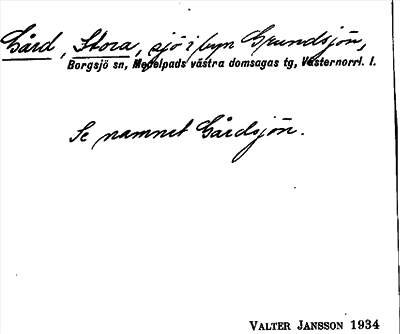 Gård, Stora, sjö i byn Grundsjön,
Borgsjö sn, Medelpads västra domsagas tg, Västernorrl. l.
Se namnet Gårdsjön.
VALTER JANSSON 1934